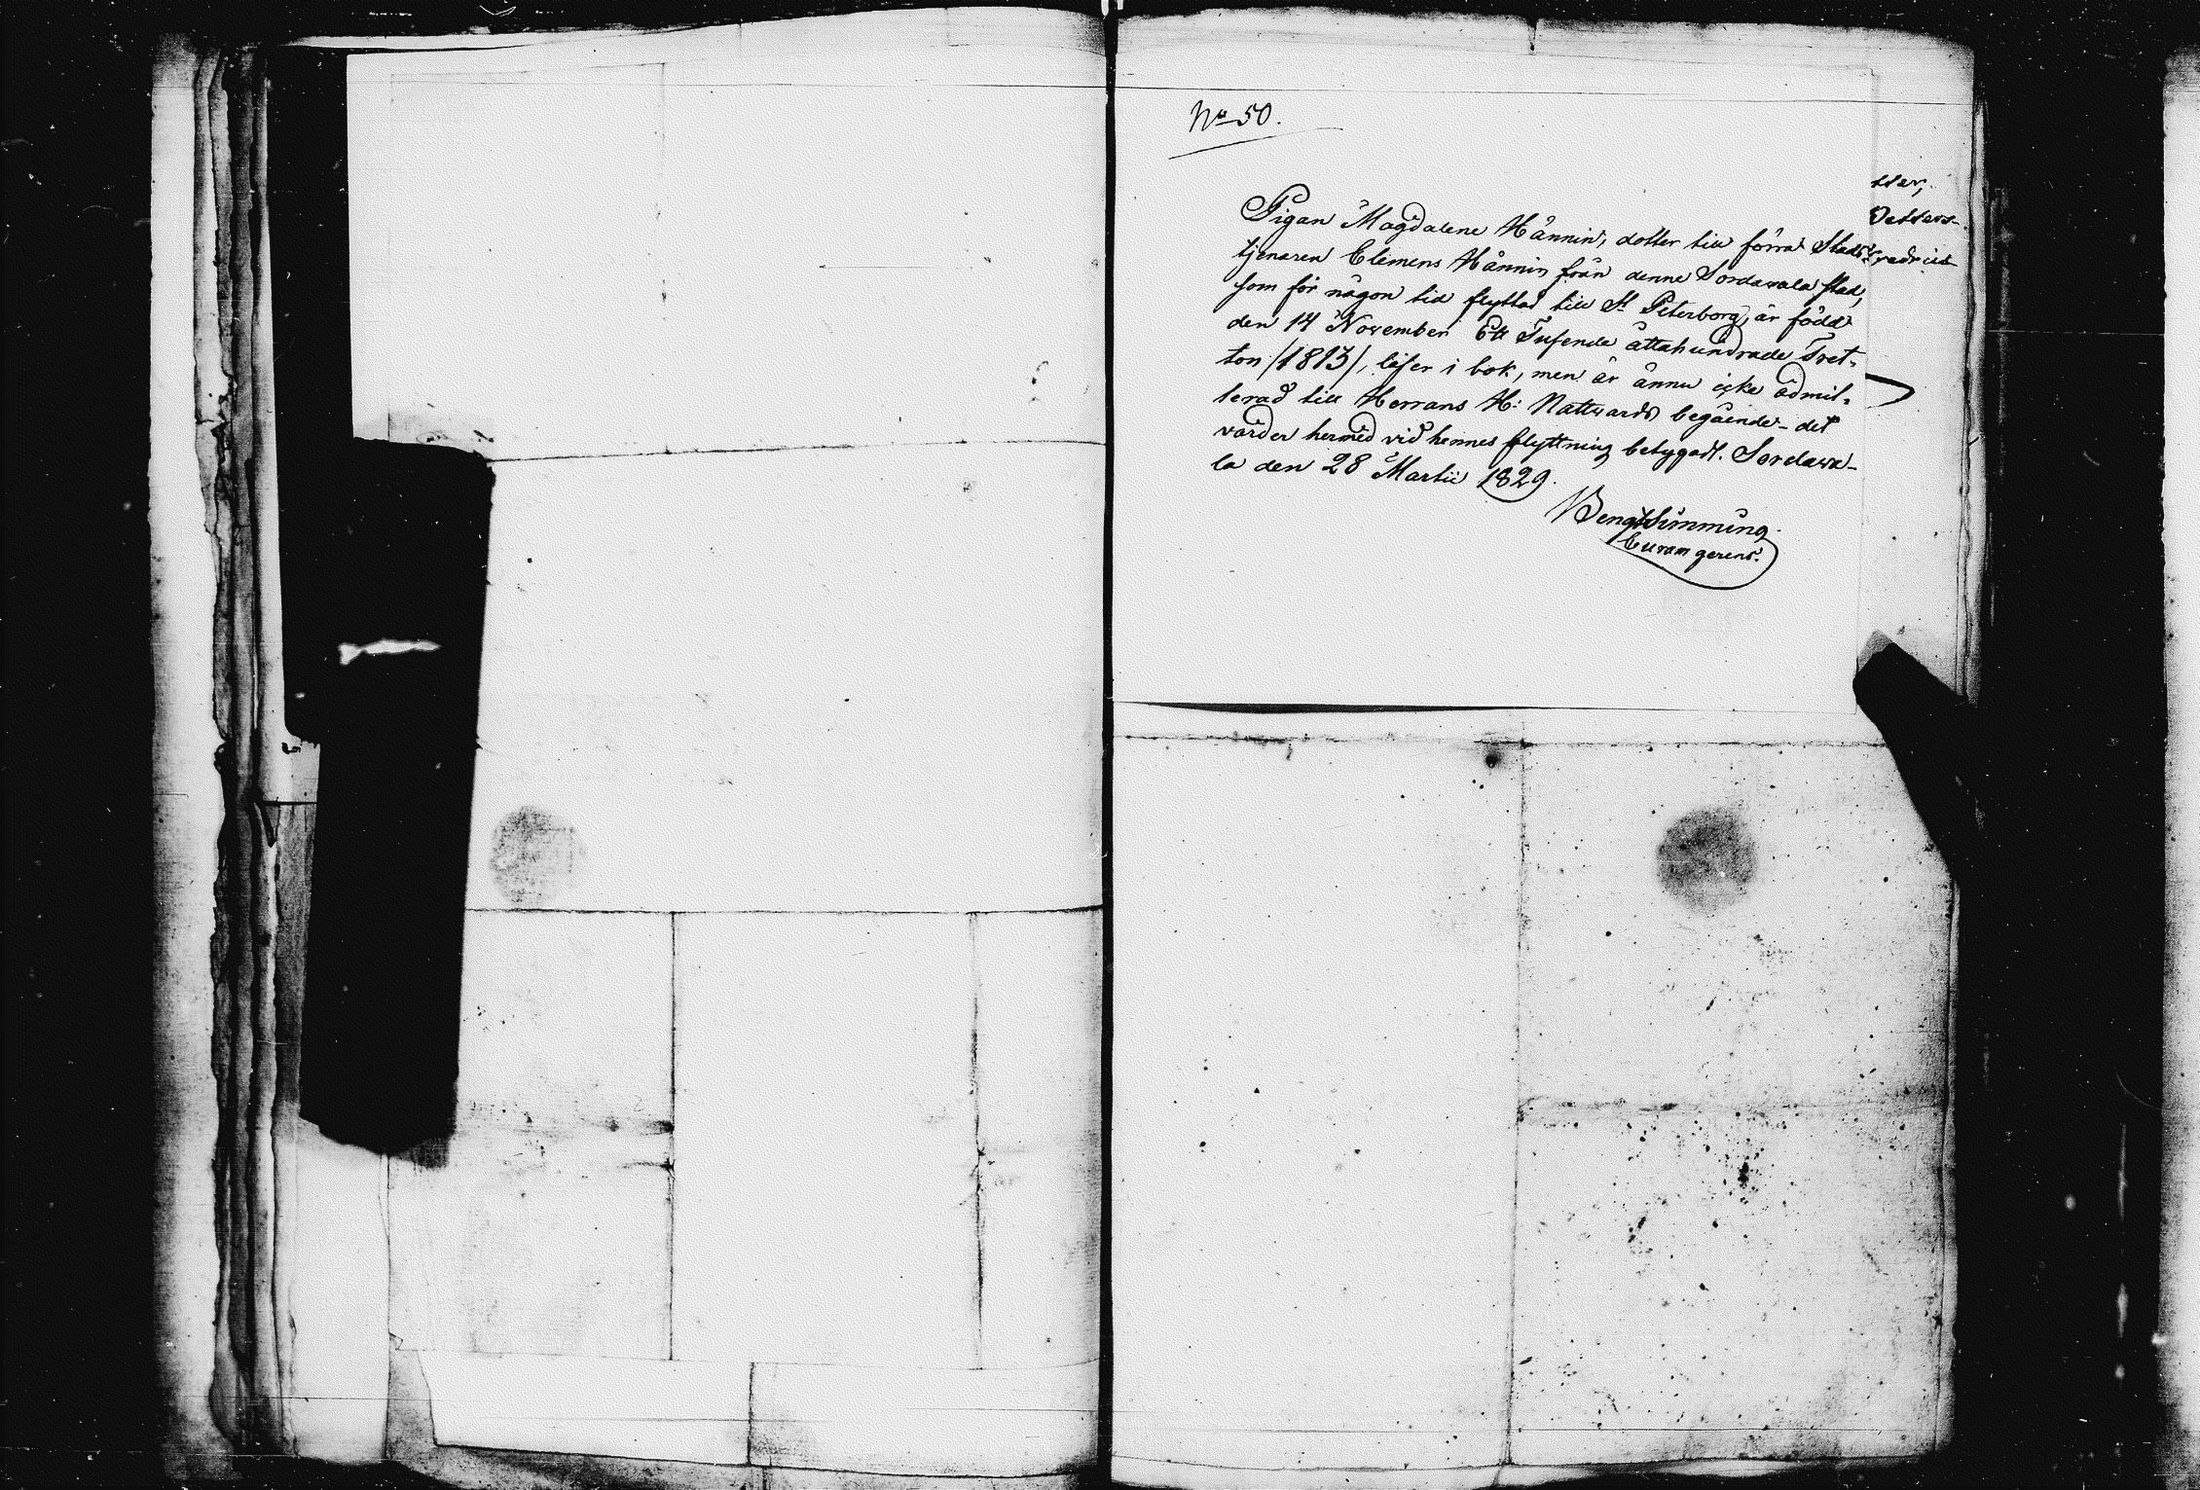 No 50.
Pigan Magdalene Hännin, dotter till förra Stads-
tjenaren Clemens Hännin från denne Sordavala stad,
som för någon tid flyttat till St Peterborg, är född
den 14 November Ett Tusende åttahundrade Tret-
ton /1813/, läser i bok, men är ännu icke admit-
terad till Herrans H: Nattvards begående - det
varder hermed vid hennes flyttning betygadt. Sordava-
la den 28 Martii 1829.
Bengt Simming.
Curam gerens.